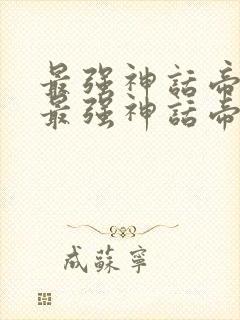 最强神話帝
最强神話帝
成蘇寧